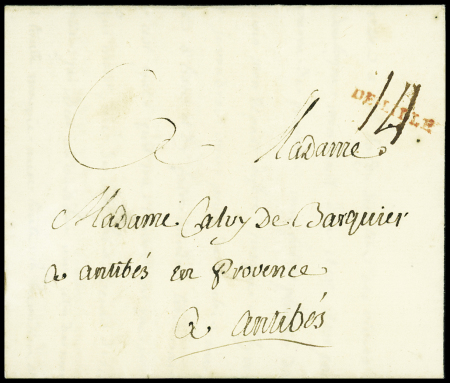 DE LILLE
14
A Madame
Madame Calvy De Barquier
a antibés en Provence
a antibés